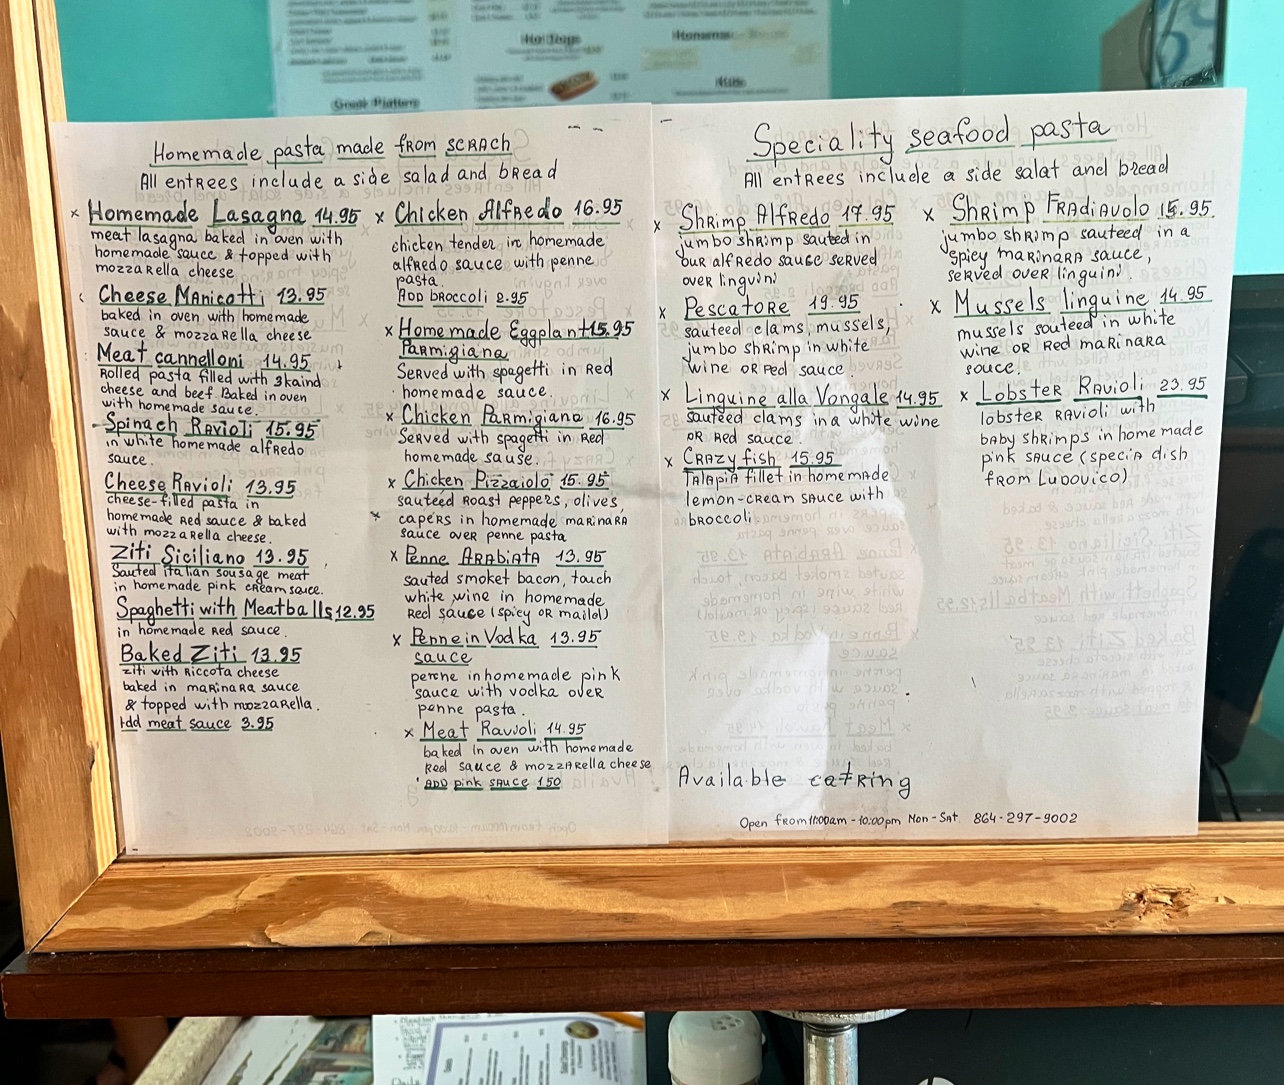 Hot Dogs
Homemade pasta made from scRAch
All entRees include a side salad and bRead
x Homemade Lasagna 14.95
meat lasagna baked in oven with
homemade sauce & topped with
mozzaRella cheese
Cheese Manicotti 13.95
baked in oven with homemade
sauce & mozzaRella cheese
Meat cannelloni 14.95
Rolled pasta filled with 3kaind
cheese and beef. Baked in oven
with homemade sauce.
Spinach Ravioli 15.95
in white homemade alfRedo
sauce.
Cheese Ravioli 13.95
cheese-filled pasta in
homemade Red sauce & baked
with mozzaRella cheese.
Ziti Siciliano 13.95
Sauted italian sousage meat
in homemade pink cReam sauce.
Spaghetti with Meatballs 12.95
in homemade Red sauce.
Baked Ziti 13.95
ziti with Riccota cheese
baked in maRinaRa sauce
& topped with mozzaRella.
Add meat sauce 3.95
x Chicken AlfRedo 16.95
chicken tender in homemade
alfRedo sauce with penne
pasta.
ADD bRoccoli 2.95
x Homemade Eggplant 15.95
PaRmigiana
Served with spagetti in Red
homemade sauce.
x Chicken PaRmigiana 16.95
Served with spagetti in Red
homemade sause.
x Chicken Pizzaiolo 15.95
sauteed Roast peppeRs, olives,
capeRs in homemade maRinaRA
sauce oveR penne pasta
x Penne ARAbiAtA 13.95
sauted smoket bacon, touch
white wine in homemade
Red sauce (spicy OR maild)
x Penne in Vodka 13.95
sauce
penne in homemade pink
sauce with vodka oveR
penne pasta.
x Meat Ravioli 14.95
baked in oven with homemade
Red sauce & mozzARella cheese
ADD pink sAuce 1.50
Speciality seafood pasta
All entRees include a side salat and bRead
x ShRimp AlfRedo 17.95
jumbo shRimp sauted in
our alfRedo sauce seRved
oveR linguini
x PescatoRe 19.95
sauteed clams, mussels,
jumbo shRimp in white
wine OR Red sauce.
x Linguine alla Vongale 14.95
sauteed clams in a white wine
OR Red sauce.
x CRAzy fish 15.95
TAlApiA fillet in homemAde
lemon-cReam sauce with
bRoccoli
x ShRimp FRAdiAvolo 15.95
jumbo shRimp sauteed in a
spicy maRinaRA sauce,
seRved oveR linguini
x Mussels linguine 14.95
mussels souteed in white
wine OR Red maRinaRa
souce.
x LobsteR RAvioli 23.95
lobsteR RAvioli with
bAby shRimps in homemade
pink sAuce (speciA dish
fRom Ludovico)
Available catRing
Open fRom 11:00am - 10:00pm Mon - SAt 864-297-9002